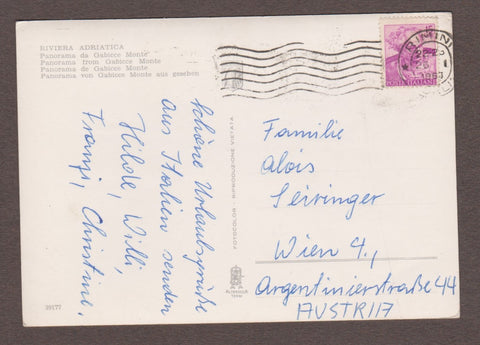 RIVIERA ADRIATICA
Panorama da Gabicce Monte
Panorama from Gabicce Monte
Panorama de Gabicce Monte
Panorama von Gabicce Monte aus gesehen
Schöne Urlaubsgrüße
aus Italien senden
Hilde, Willi,
Franzi, Christine.
FOTOCOLOR - RIPRODUZIONE VIETATA
RIMINI
POSTE ITALIANE
Familie
Alois
Seiringer
Wien 4.,
Argentinierstraße 44
AUSTRIA
39177